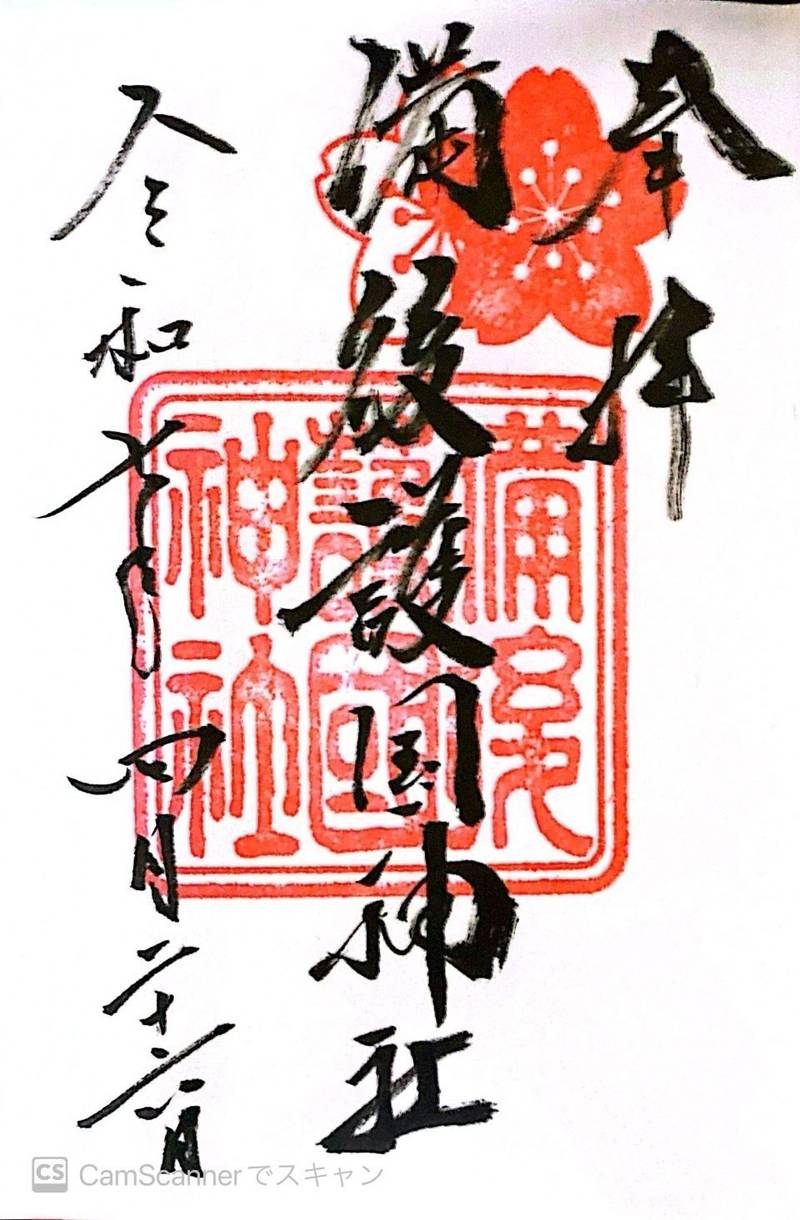 奉拝
備後護国神社
令和七年四月二十六日
備後
護國
神社
CS CamScannerでスキャン